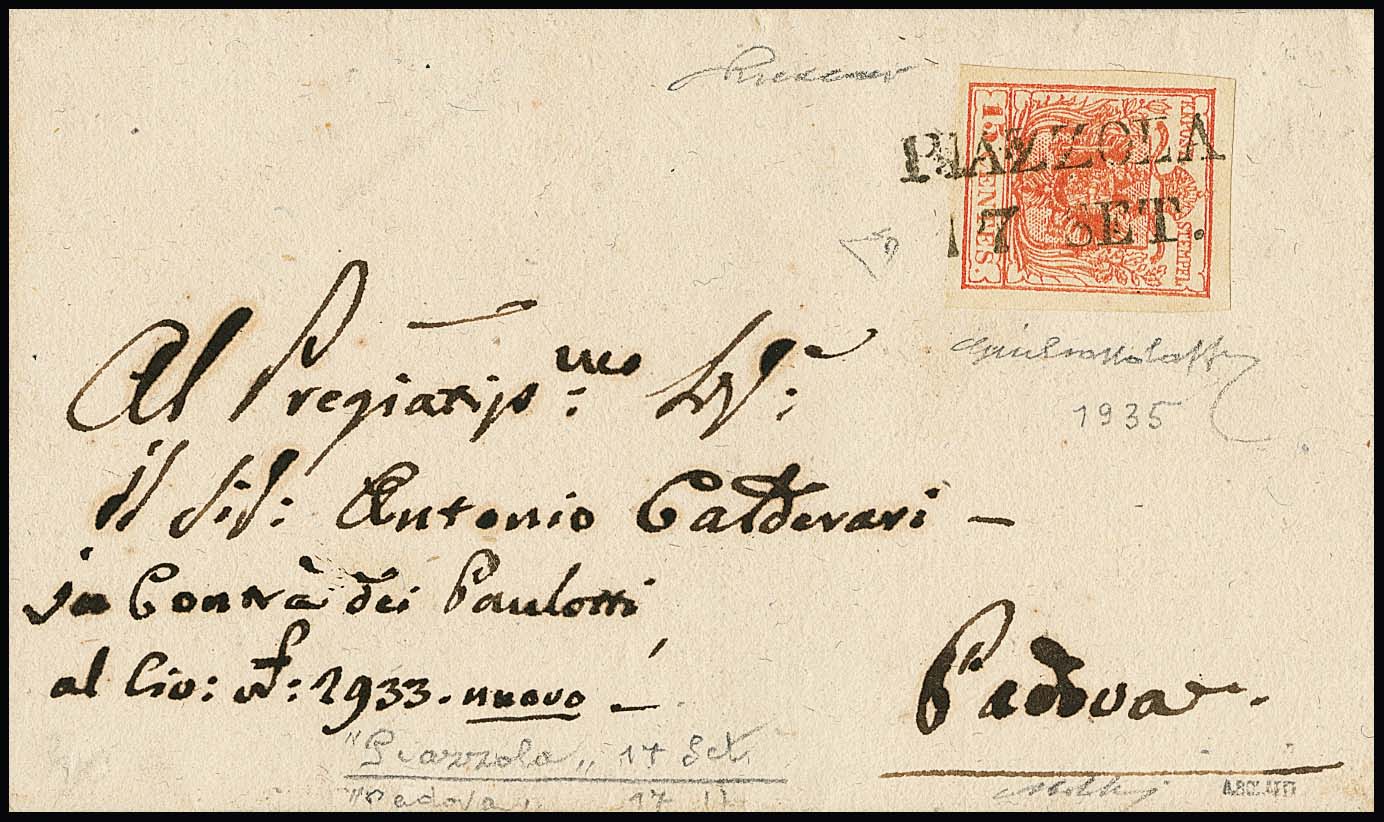 KKPOST-STEMPEL
15 CENTES.
PIAZZOLA
17 SET.
1935
Al Pregiatiss.mo Sigr:
il Sig: Antonio Calderari –
in Contrà dei Paulotti
al Civ: N: 1933. nuovo –
Padova.
"Piazzola" 17 Set.
"Padova" 17